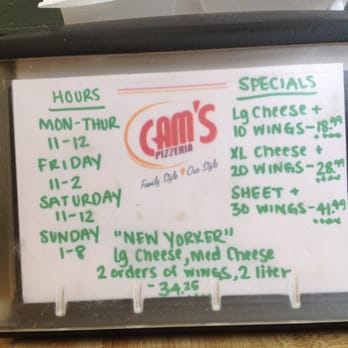 HOURS
MON-THUR
11-12
FRIDAY
11-2
SATURDAY
11-12
SUNDAY
1-8
CAM'S
PIZZERIA
Family Style Our Style
SPECIALS
Lg Cheese +
10 WINGS-18.99
XL Cheese +
20 WINGS-28.99
SHEET +
30 WINGS-41.99
"NEW YORKER"
Lg Cheese, Med Cheese
2 orders of WINGS, 2 liter
-34.25